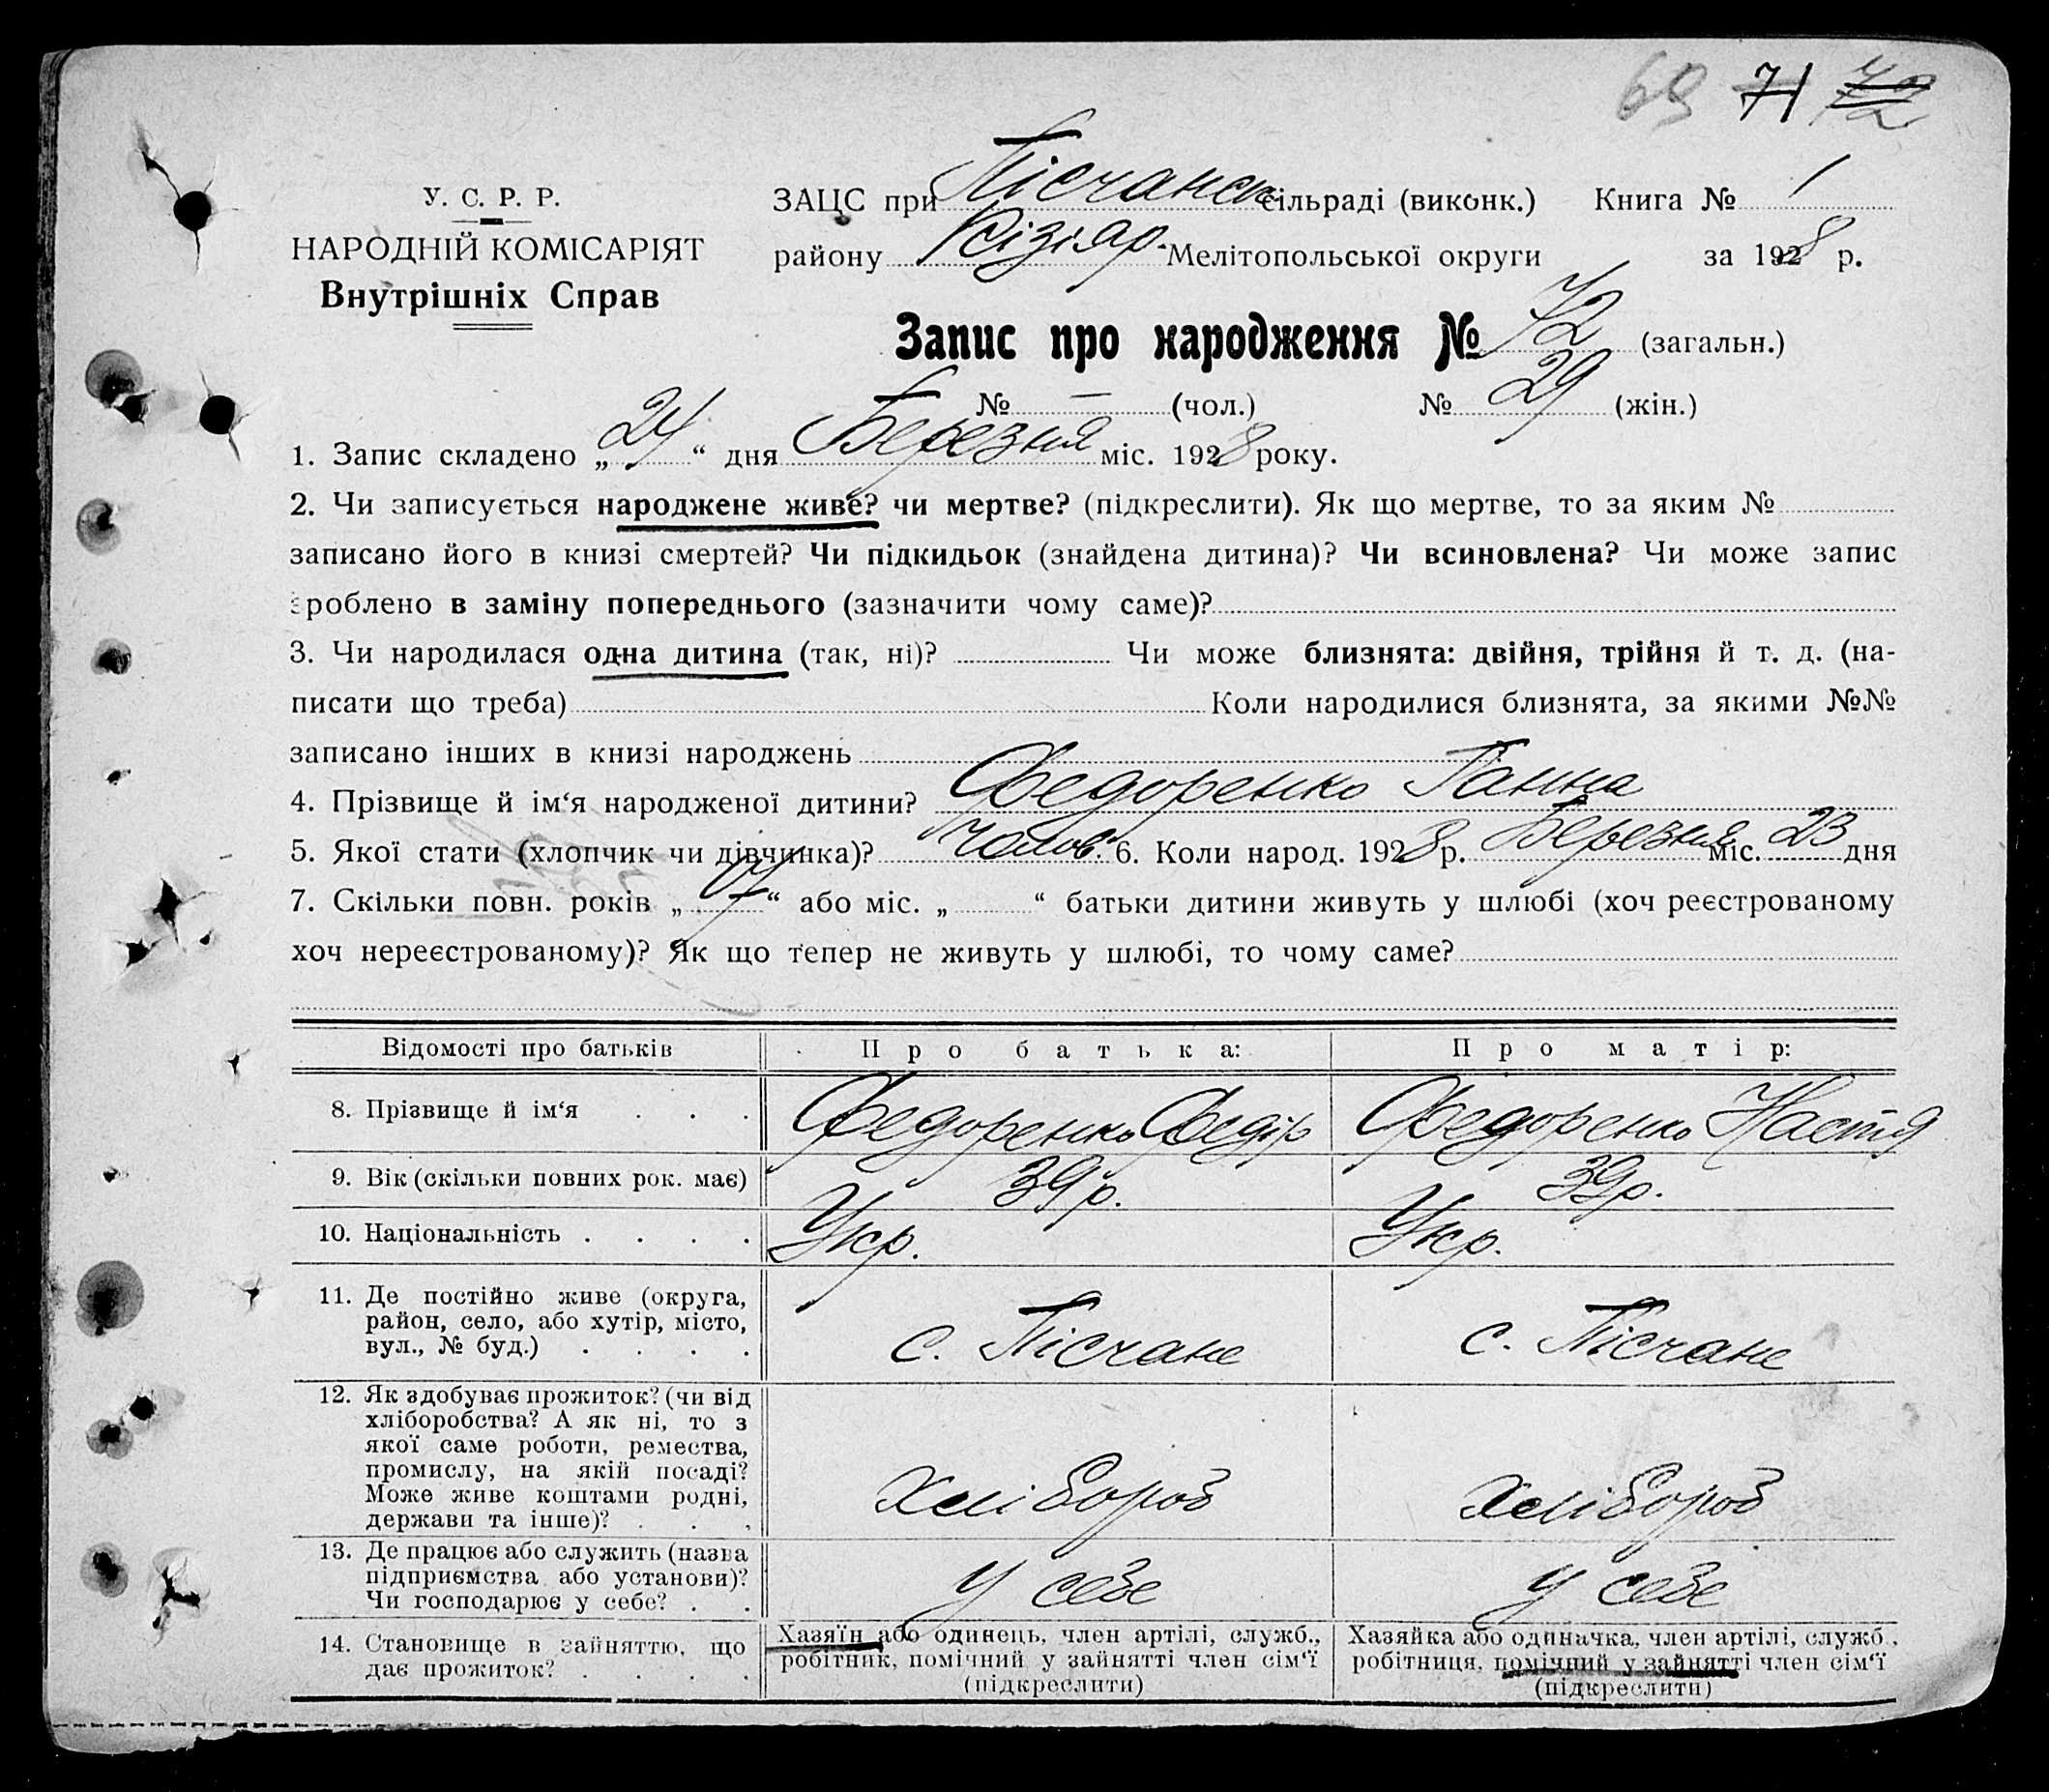 69 71 72
У. С. Р. Р.
НАРОДНІЙ КОМІСАРІЯТ
Внутрішніх Справ
ЗАЦС при Пісчанск сільраді (виконк.) Книга № 1
району Кізіяр. Мелітопольської округи за 1928 р.
Запис про народження № 72 (загальн.)
№ — (чол.) № 29 (жін.)
1. Запис складено „24“ дня Березня міс. 1928 року.
2. Чи записується народжене живе? чи мертве? (підкреслити). Як що мертве, то за яким №
записано його в книзі смертей? Чи підкидьок (знайдена дитина)? Чи всиновлена? Чи може запис
зроблено в заміну попереднього (зазначити чому саме)?
3. Чи народилася одна дитина (так, ні)? Чи може близнята: двійня, трійня й т. д. (на-
писати що треба) Коли народилися близнята, за якими №№
записано інших в книзі народжень
4. Прізвище й ім‘я народженої дитини? Федоренко Ганна
5. Якої стати (хлопчик чи дівчинка)? чолов. 6. Коли народ. 1928 р. Березня міс. 23 дня
7. Скільки повн. років „ “ або міс. „ “ батьки дитини живуть у шлюбі (хоч реєстрованому
хоч нереєстрованому)? Як що тепер не живуть у шлюбі, то чому саме?
Відомості про батьків Про батька: Про матір:
8. Прізвище й ім‘я . . . Федоренко Федір Федоренко Настя
9. Вік (скільки повних рок. має) 39 р. 39 р.
10. Національність . . . . Укр. Укр.
11. Де постійно живе (округа,
район, село, або хутір, місто,
вул., № буд.) . . . .
с. Пісчане с. Пісчане
12. Як здобуває прожиток? (чи від
хліборобства? А як ні, то з
якої саме роботи, ремества,
промислу, на якій посаді?
Може живе коштами родні,
держави та інше)? . . .
Хлібороб Хлібороб
13. Де працює або служить (назва
підприємства або установи)?
Чи господарює у себе? . .
у себе у себе
14. Становище в зайняттю, що
дає прожиток? . . . .
Хазяїн або одинець, член артілі, служб.,
робітник, помічний у зайнятті член сім‘ї
(підкреслити)
Хазяйка або одиначка, член артілі, служб.,
робітниця, помічний у зайнятті член сім‘ї
(підкреслити)